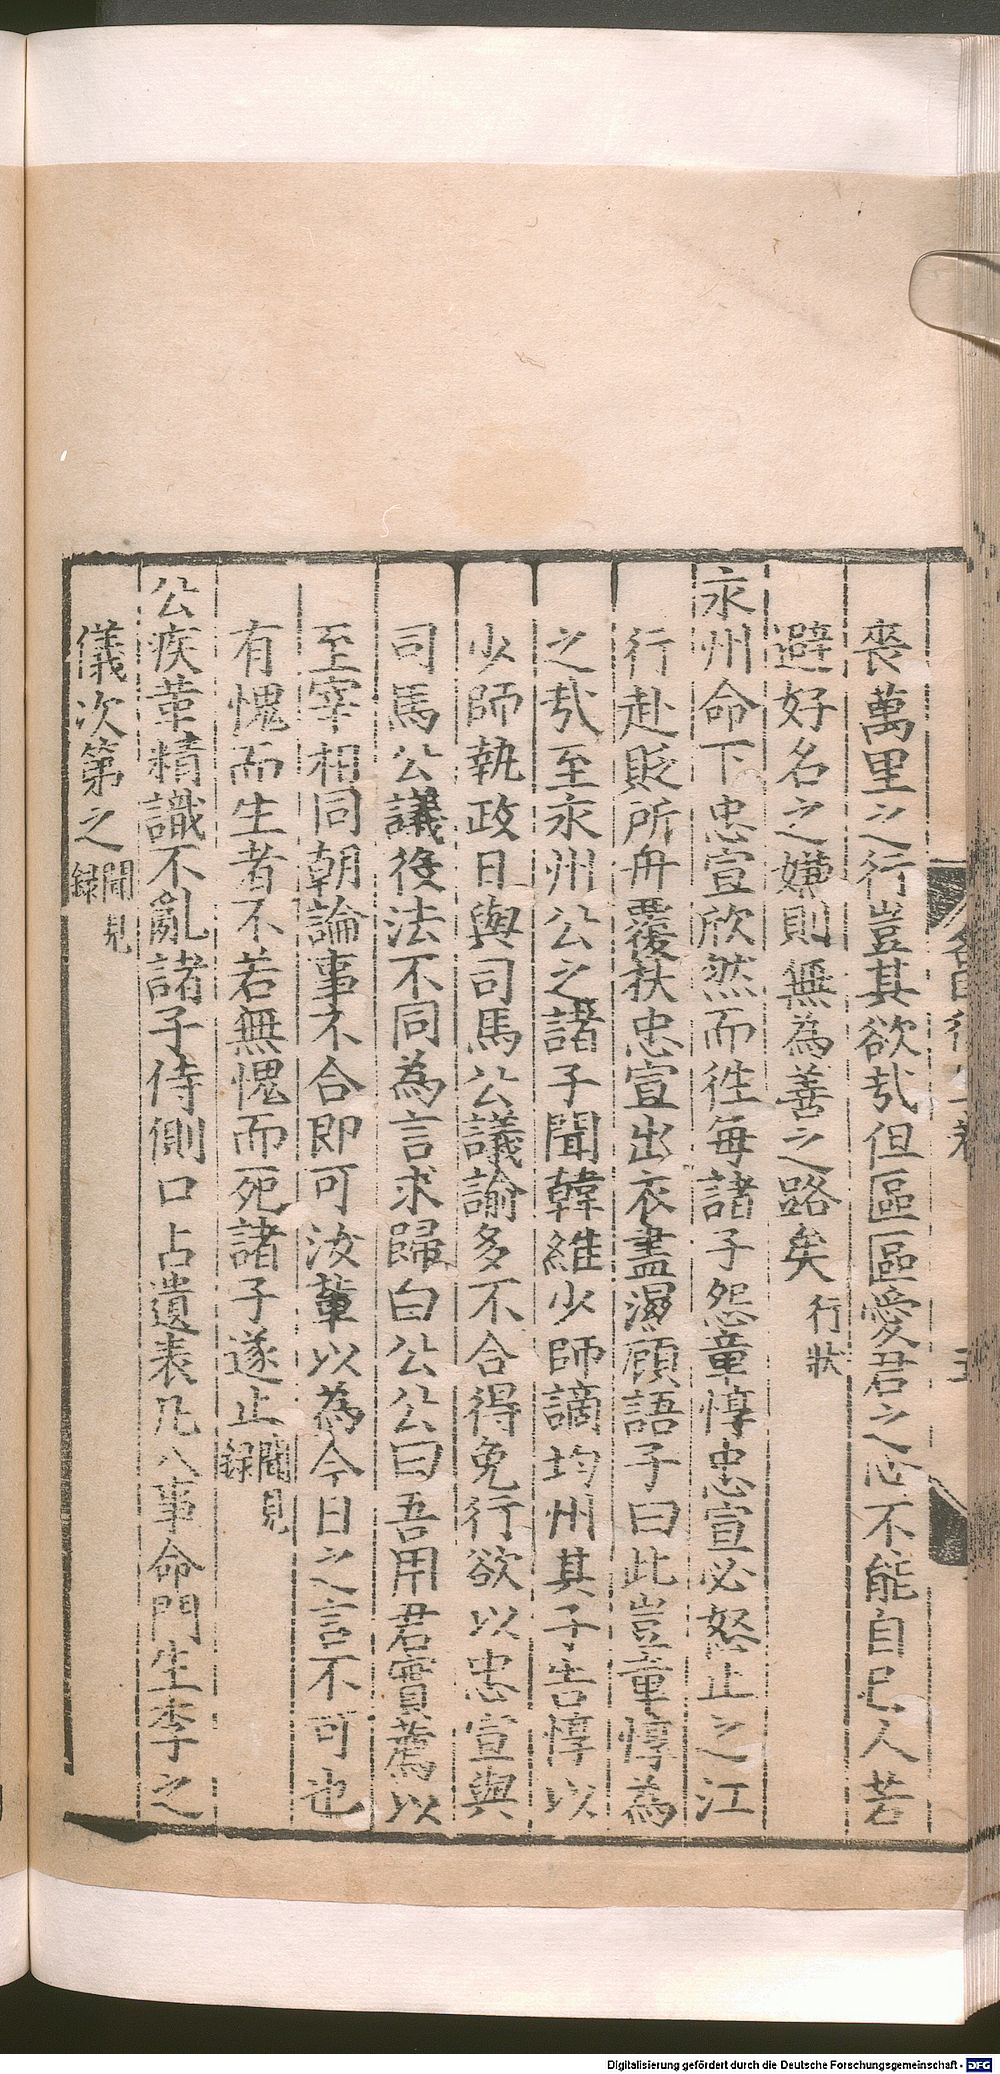 喪萬里之行豈其欲㢤但區區愛君之心不能自已人若
避好名之嫌則無為善之路矣行狀
永州命下忠宣欣然而徃每諸子怨章惇忠宣必怒止之江
行赴貶所舟覆扶忠宣出衣盡濕顧語子曰此豈章惇為
之㢤至永州公之諸子聞韓維少師謫均州其子告惇以
少師執政日與司馬公議論多不合得免行欲以忠宣與
司馬公議役法不同為言求歸白公公曰吾用君實薦以
至宰相同朝論事不合即可汝輩以為今日之言不可也
有愧而生者不若無愧而死諸子遂止聞見録
公疾革精識不亂諸子侍側口占遺表凡八事命門生李之
儀次第之聞見録
Digitalisierung gefördert durch die Deutsche Forschungsgemeinschaft - DFG